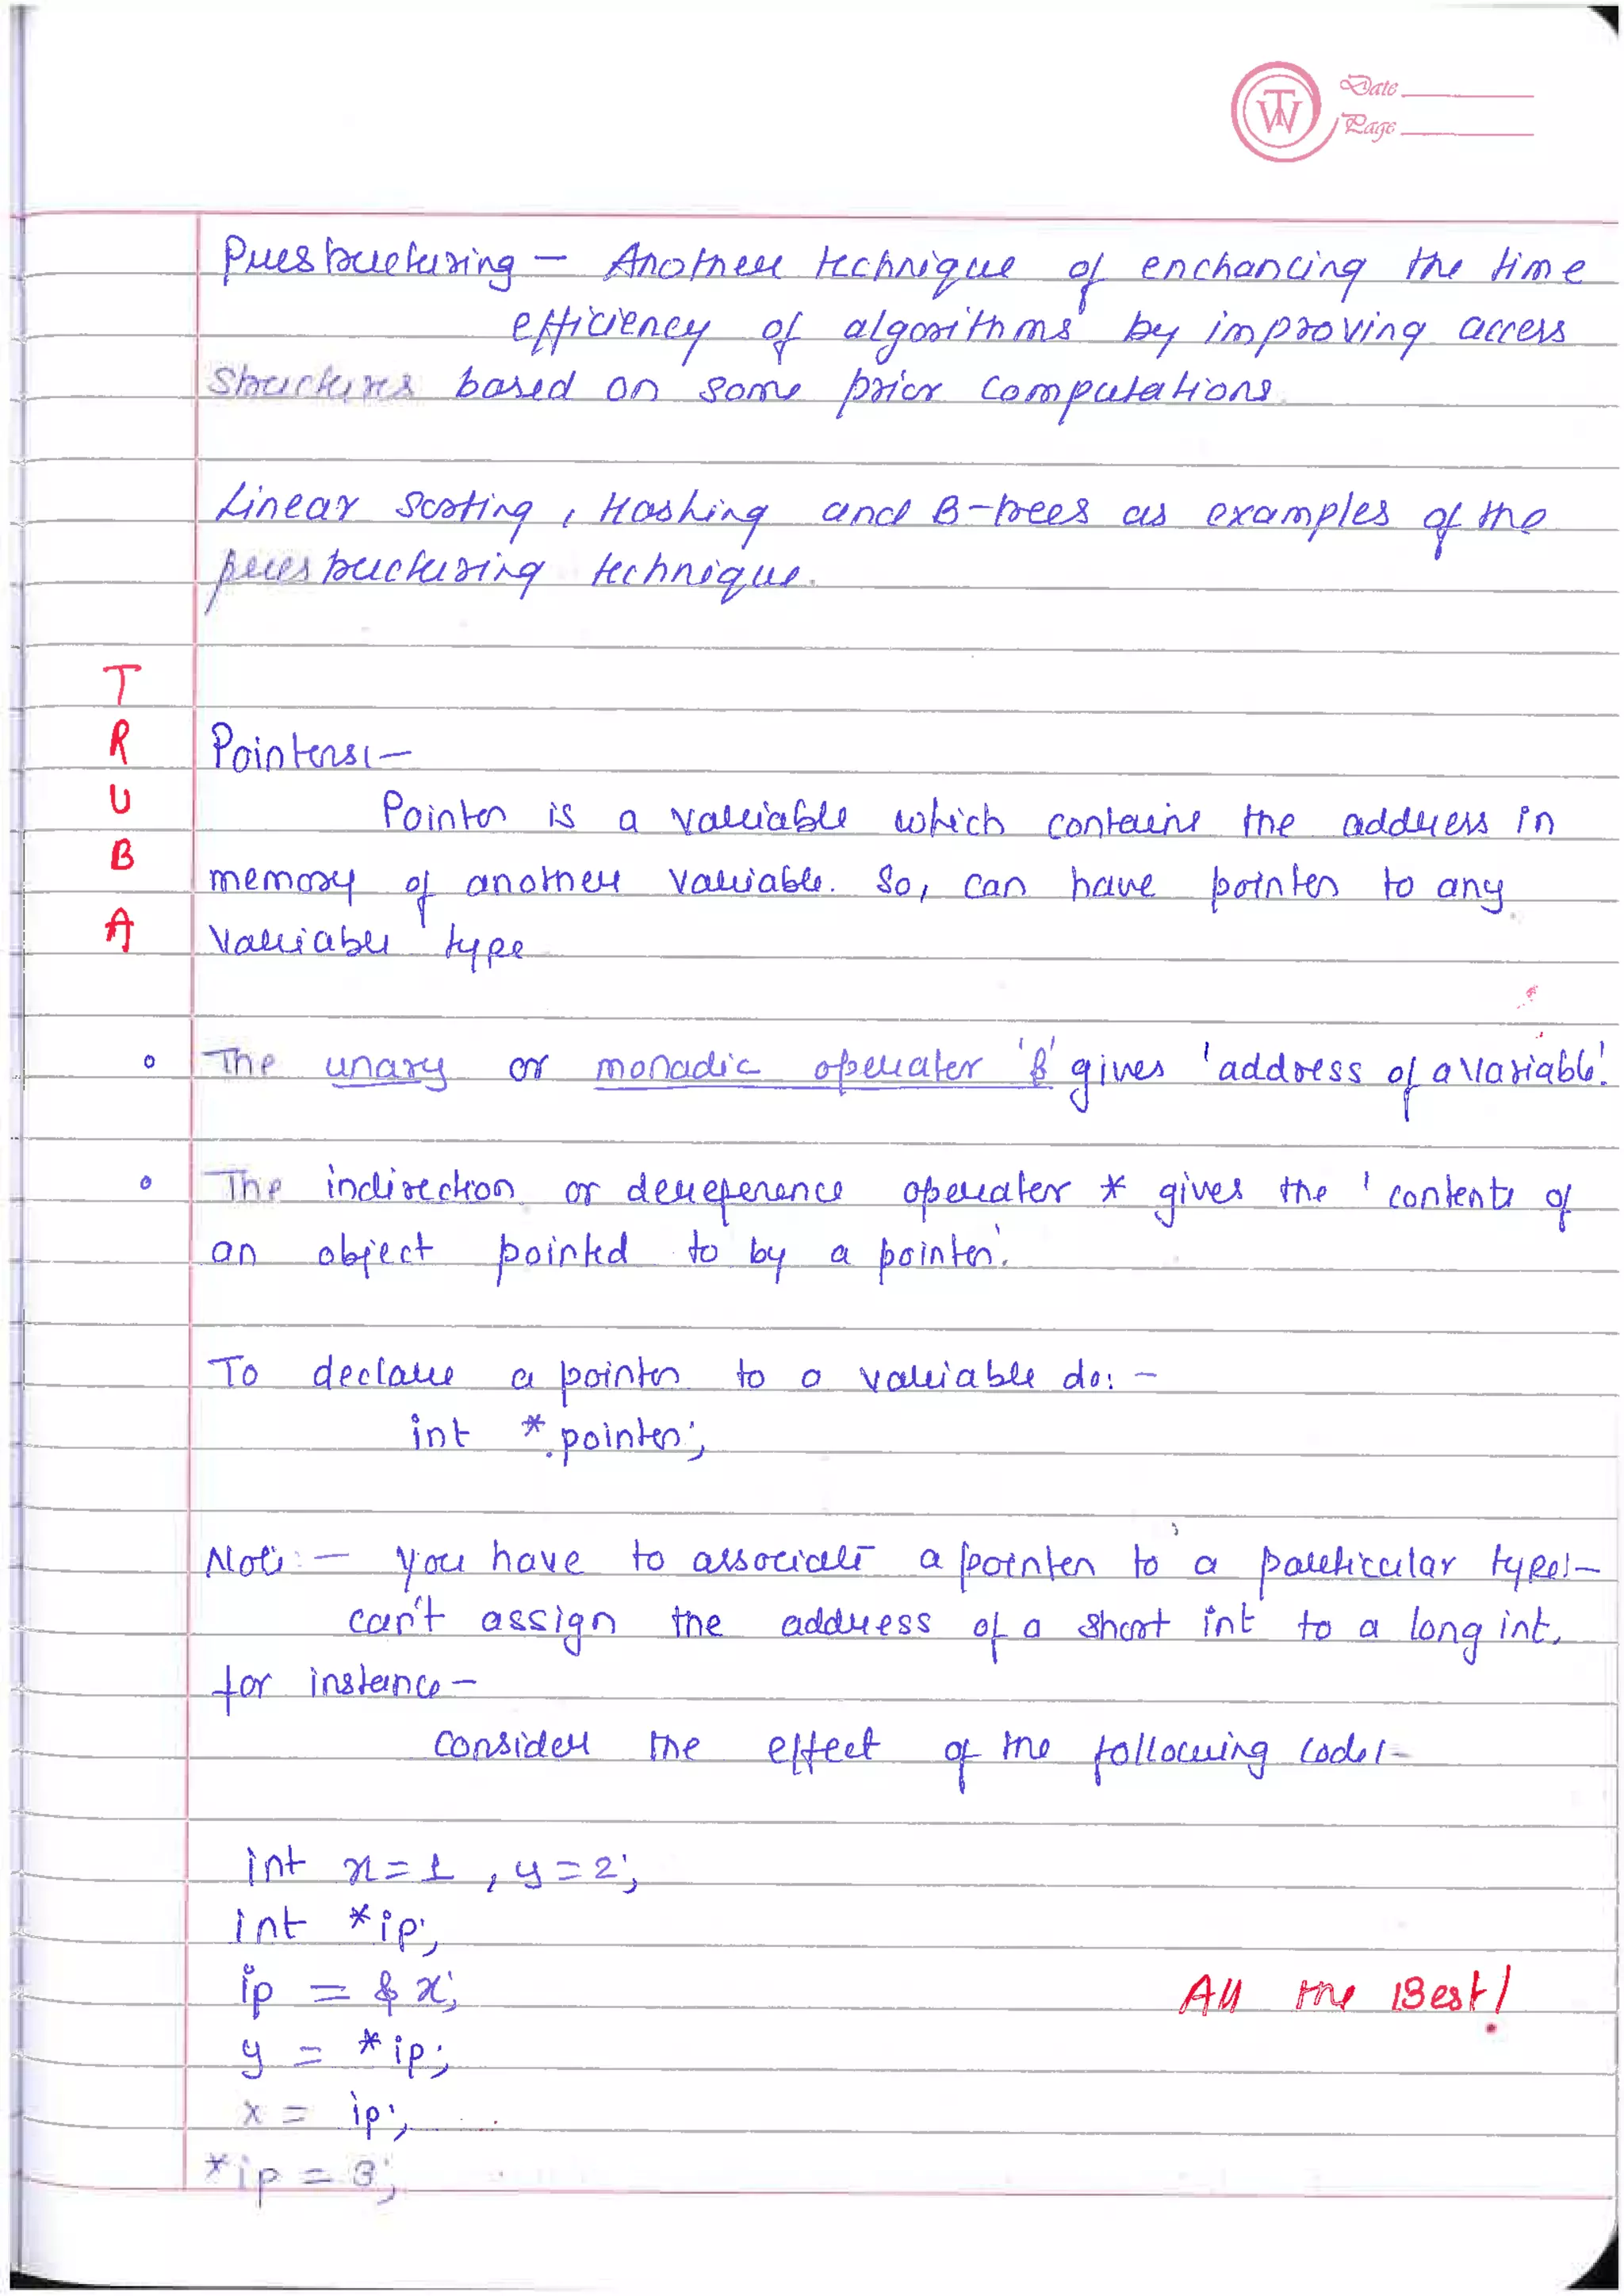 Date
Page
Prestructuring — Another technique of enchancing the time
efficiency of algorithms by improving access
structures based on some prior computations
Linear Sorting, Hashing and B-trees as examples of the
prestructuring technique.
T
R
U
B
A
Pointers:-
Pointer is a variable which contains the address in
memory of another variable. So, can have pointer to any
variable type
The unary or monadic operater '&' gives 'address of a variable'.
The indirection or dereference operater * gives the 'contents of
an object pointed to by a pointer'.
To declare a pointer to a variable do: -
int *pointer;
Note: — you have to associate a pointer to a particular type:-
can't assign the address of a short int to a long int.
for instance -
consider the effect of the following code:-
int x=1, y=2;
int *ip;
ip = &x;
y = *ip;
x = ip;
*ip = 3;
All the Best!